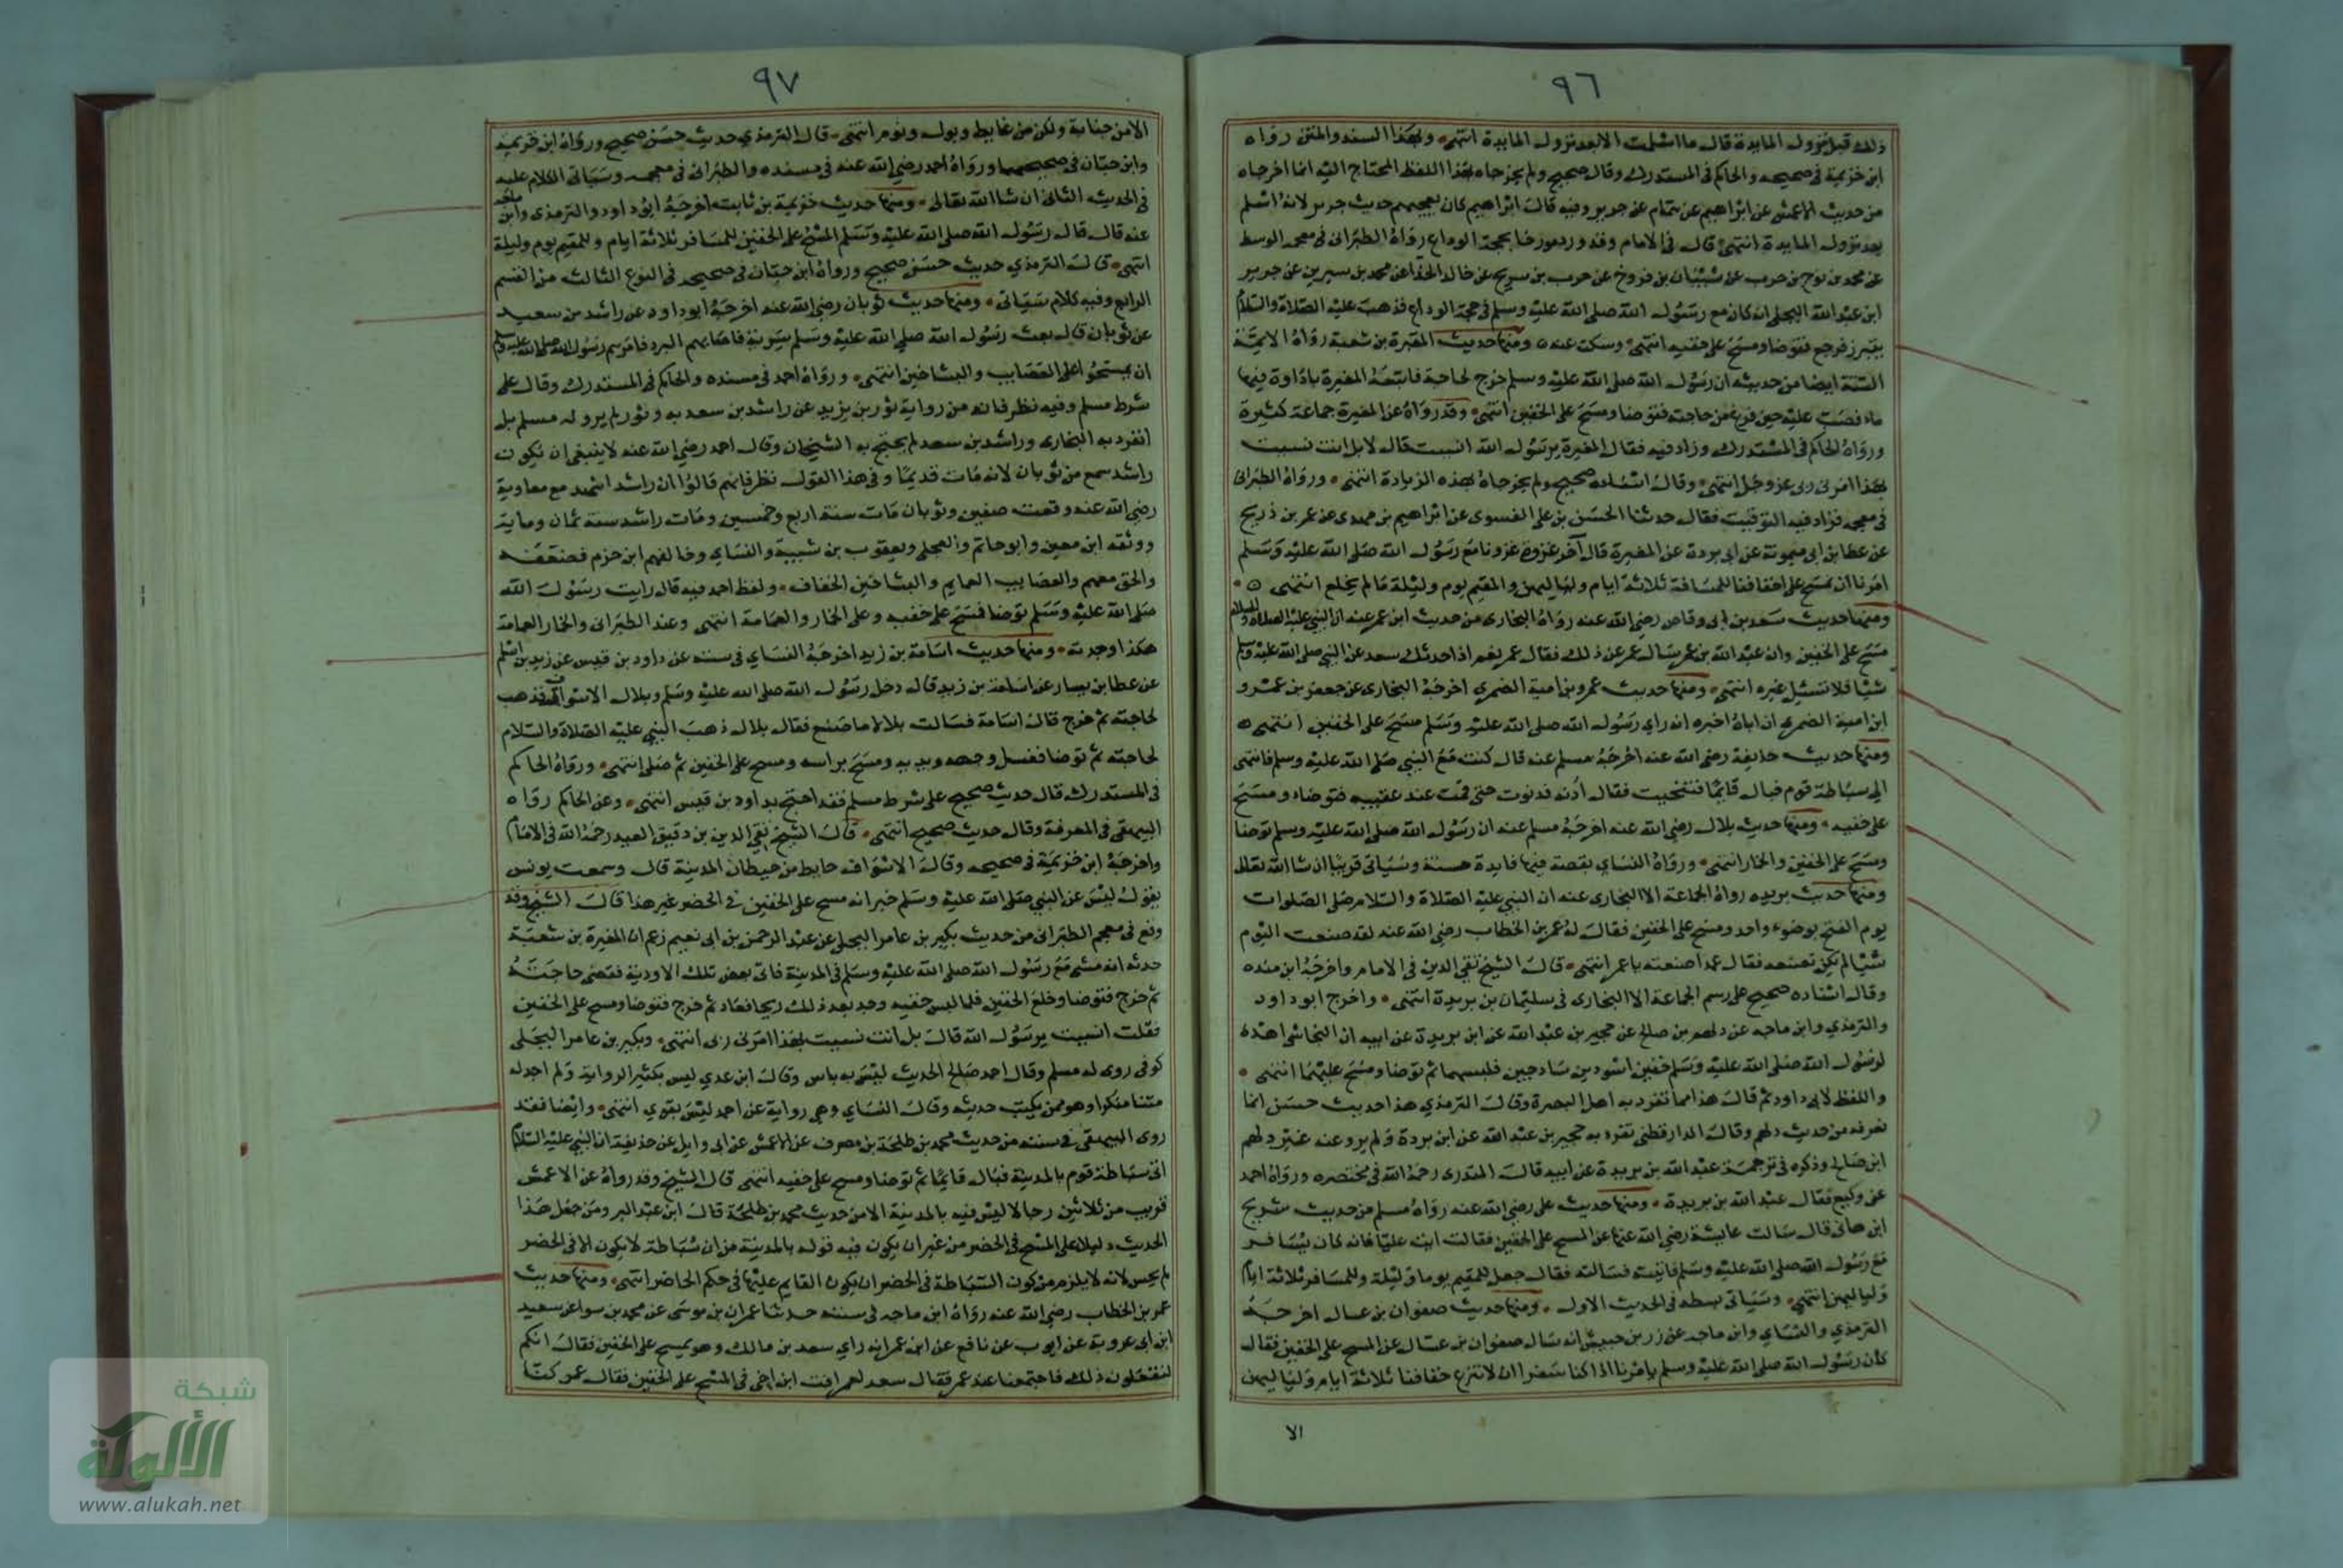 ٩٦
ذلك قبل نزول المايدة قال ما اسلمت الا بعد نزول المايدة انتهى وبهذا السند والمتن رواه
ابن خزيمة فى صحيحه والحاكم فى المستدرك وقال صحيح ولم يخرجاه بهذا اللفظ المحتاج اليه انما اخرجاه
من حديث الاعمش عن ابراهيم عن همام عن جرير وفيه قال ابراهيم كان يعجبهم حديث جرير لانه اسلم
بعد نزول المايدة انتهى قال فى الامام وقد ورد مورخا بحجة الوداع رواه الطبرانى فى معجمه الوسط
عن محمد بن نوح بن حرب عن شيبان بن فروخ عن حرب بن سريج عن خالد الحذا عن محمد بن سيرين عن جرير
ابن عبد الله البجلى انه كان مع رسول الله صلى الله عليه وسلم فى حجة الوداع فذهب عليه الصلاة والسلام
يتبرز فرجع فتوضا ومسح على خفيه انتهى وسكت عنه ومنها حديث المغيرة بن شعبة رواه الايمة
الستة ايضا من حديثه ان رسول الله صلى الله عليه وسلم خرج لحاجة فاتبعه المغيرة باداوة فيها
ماء فصب عليه حين فرغ من حاجته فتوضا ومسح على الخفين انتهى وقد رواه عن المغيرة جماعة كثيرة
ورواه الحاكم فى المستدرك وزاد فيه فقال المغيرة يرسول الله انسيت قال لا بل انت نسيت
بهذا امرنى ربى عز وجل انتهى وقال اسناده صحيح ولم يخرجاه بهذه الزيادة انتهى ورواه الطبرانى
فى معجمه فزاد فيه التوقيت فقال حدثنا الحسن بن على الفسوى عن ابراهيم بن مهدى عن عمر بن ذريح
عن عطا بن ابى ميمونة عن ابى بردة عن المغيرة قال آخر غزوة غزونا مع رسول الله صلى الله عليه وسلم
امرنا ان نمسح على خفافنا للمسافة ثلاثة ايام ولياليهن والمقيم يوم وليلة مالم يخلع انتهى
ومنها حديث سعد بن ابى وقاص رضى الله عنه رواه البخارى من حديث ابن عمر عنه ان النبى عليه الصلاة والسلام
مسح على الخفين وان عبد الله بن عمر سال عمر عن ذلك فقال عمر نعم اذا حدثك سعد عن النبى صلى الله عليه وسلم
شيا فلا تسئل غيره انتهى ومنها حديث عمرو بن امية الضمري اخرجه البخارى عن جعفر بن عمرو
ابن امية الضمرى ان اباه اخبره انه راى رسول الله صلى الله عليه وسلم مسح على الخفين انتهى
ومنها حديث حذيفة رضى الله عنه اخرجه مسلم عنه قال كنت مع النبى صلى الله عليه وسلم فانتهى
الى سباطة قوم فبال قايما فتنحيت فقال أدنه فدنوت حتى قمت عند عقبيه فتوضاء ومسح
على خفيه ومنها حديث بلال رضى الله عنه اخرجه مسلم عنه ان رسول الله صلى الله عليه وسلم توضا
ومسح على الخفين والخمار انتهى ورواه النساى بقصة فيها فايدة حسنة وسياتى قريبا ان شا الله تعالى
ومنها حديث بريده رواه الجماعة الا البخارى عنه ان النبى عليه الصلاة والسلام صلى الصلوات
يوم الفتح بوضوء واحد ومسح على الخفين فقال له عمر بن الخطاب رضى الله عنه لقد صنعت اليوم
شيا لم تكن تصنعه فقال عمدا صنعته يا عمر انتهى قال الشيخ تقى الدين فى الامام واخرجه ابن منده
وقال اسناده صحيح على رسم الجماعة الا البخارى فى سليمان بن بريدة انتهى واخرج ابو داود
والترمذي وابن ماجه عن دلهم بن صالح عن حجير بن عبد الله عن ابن بريدة عن ابيه ان النجاشى اهدى
لرسول الله صلى الله عليه وسلم خفين اسودين ساذجين فلبسهما ثم توضا ومسح عليهما انتهى
واللفظ لابى داود ثم قال هذا مما تفرد به اهل البصرة وقال الترمذي هذا حديث حسن انما
نعرفه من حديث دلهم وقال الدارقطنى تفرد به حجير بن عبد الله عن ابن بردة ولم يرو عنه غير دلهم
ابن صالح وذكره فى ترجمة عبد الله بن بريدة عن ابيه قال المنذرى رحمه الله فى مختصره ورواه احمد
عن وكيع فقال عبد الله بن بريدة ومنها حديث على رضى الله عنه رواه مسلم من حديث شريح
ابن هانى قال سالت عايشة رضى الله عنها عن المسح على الخفين فقالت ايت عليا فانه كان يسافر
مع رسول الله صلى الله عليه وسلم فاتيته فسالته فقال جعل للمقيم يوما وليلة وللمسافر ثلاثة ايام
ولياليهن انتهى وسياتى بسطه فى الحديث الاول ومنها حديث صفوان بن عسال اخرجه
الترمذي والنساى وابن ماجه عن زر بن حبيش انه سال صفوان بن عسال عن المسح على الخفين فقال
كان رسول الله صلى الله عليه وسلم يامرنا اذا كنا سفرا ان لا ننزع خفافنا ثلاثة ايام ولياليهن
الا
٩٧
الا من جنابة ولكن من غايط وبول ونوم انتهى قال الترمذي حديث حسن صحيح ورواه ابن خزيمة
وابن حبان فى صحيحهما ورواه احمد رضى الله عنه فى مسنده والطبرانى فى معجمه وسياتى الكلام عليه
فى الحديث الثانى ان شا الله تعالى ومنها حديث خزيمة بن ثابت اخرجه ابو داود والترمذى وابن ماجه
عنه قال قال رسول الله صلى الله عليه وسلم المسح على الخفين للمسافر ثلاثة ايام وللمقيم يوم وليلة
انتهى قال الترمذي حديث حسن صحيح ورواه ابن حبان فى صحيحه فى النوع الثالث من القسم
الرابع وفيه كلام سياتى ومنها حديث ثوبان رضى الله عنه اخرجه ابو داود عن راشد بن سعيد
عن ثوبان قال بعث رسول الله صلى الله عليه وسلم سرية فاصابهم البرد فامرهم رسول الله صلى الله عليه وسلم
ان يمسحوا على العصايب والتساخين انتهى ورواه احمد فى مسنده والحاكم فى المستدرك وقال على
شرط مسلم وفيه نظر فانه من رواية ثور بن يزيد عن راشد بن سعد به وثور لم يرو له مسلم بل
انفرد به البخارى وراشد بن سعد لم يحتج به الشيخان وقال احمد رضى الله عنه لا ينبغى ان يكون
راشد سمع من ثوبان لانه مات قديما وفى هذا القول نظر فانهم قالوا ان راشد اشهد مع معاوية
رضى الله عنه وقعت صفين وثوبان مات سنة اربع وخمسين ومات راشد سنة ثمان وماية
ووثقه ابن معين وابو حاتم والعجلى ويعقوب بن شيبة والنساى وخالفهم ابن حزم فضعفه
والحق معهم والعصايب العمايم والتساخين الخفاف ولفظ احمد فيه قال رايت رسول الله
صلى الله عليه وسلم توضا فمسح على خفيه وعلى الخمار والعمامة انتهى وعند الطبرانى والخمار العمامة
هكذا وجدته ومنها حديث اسامة بن زيد اخرجه النساى فى سننه عن داود بن قيس عن زيد بن اسلم
عن عطا بن يسار عن اسامة بن زيد قال دخل رسول الله صلى الله عليه وسلم وبلال الاسواف فذهب
لحاجته ثم خرج قال اسامة فسالت بلالا ما صنع فقال بلال ذهب النبى عليه الصلاة والسلام
لحاجته ثم توضا فغسل وجهه ويديه ومسح براسه ومسح على الخفين ثم صلى انتهى ورواه الحاكم
فى المستدرك قال حديث صحيح على شرط مسلم فقد احتج بداود بن قيس انتهى وعن الحاكم رواه
البيهقى فى المعرفة وقال حديث صحيح انتهى قال الشيخ تقى الدين بن دقيق العيد رحمه الله فى الامام
واخرجه ابن خزيمة فى صحيحه وقال الاسواف حايط من حيطان المدينة قال وسمعت يونس
يقول ليس عن النبى صلى الله عليه وسلم خبر انه مسح على الخفين فى الحضر غير هذا قال الشيخ وقد
وقع فى معجم الطبرانى من حديث بكير بن عامر البجلى عن عبد الرحمن بن ابى نعيم زعم ان المغيرة بن شعبة
حدثه انه مشى مع رسول الله صلى الله عليه وسلم فى المدينة فاتى بعض تلك الاودية فقضى حاجته
ثم خرج فتوضا وخلع الخفين فلما لبس خفيه وجد بعد ذلك ريحا فعاد ثم خرج فتوضا ومسح على الخفين
فقلت انسيت يرسول الله قال بل انت نسيت بهذا امرنى ربى انتهى وبكير بن عامر البجلى
كوفى روى له مسلم وقال احمد صالح الحديث ليس به باس وقال ابن عدي ليس بكثير الرواية ولم اجد له
متنا منكرا وهو ممن يكتب حديثه وقال النساى وهى رواية عن احمد ليس بقوي انتهى وايضا فقد
روى البيهقى فى سننه من حديث محمد بن طلحة بن مصرف عن الاعمش عن ابى وايل عن حذيفة ان النبى عليه السلام
اتى سباطة قوم بالمدينة فبال قايما ثم توضا ومسح على خفيه انتهى قال الشيخ وقد رواه عن الاعمش
قريب من ثلاثين رجالا ليس فيه بالمدينة الا من حديث محمد بن طلحة قال ابن عبد البر ومن جعل هذا
الحديث دليلا على المسح فى الحضر من غير ان يكون فيه قوله بالمدينة من ان سباطة لا يكون الا فى الحضر
لم يحسن لانه لا يلزم من كون السباطة فى الحضر ان يكون القايم عليها فى حكم الحاضر انتهى ومنها حديث
عمر بن الخطاب رضى الله عنه رواه ابن ماجه فى سننه حدثنا عمران بن موسى عن محمد بن سوا عن سعيد
ابن ابى عروبة عن ايوب عن نافع عن ابن عمر انه راى سعد بن مالك وهو يمسح على الخفين فقال انكم
لتفعلون ذلك فاجتمعنا عند عمر فقال سعد لعمر افت ابن اخى فى المسح على الخفين فقال عمر كنا
شبكة
الألوكة
www.alukah.net